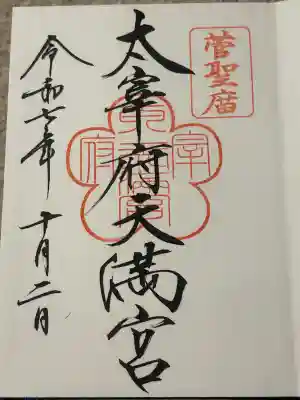 菅聖庿
太宰府天満宮
令和七年 十月二日